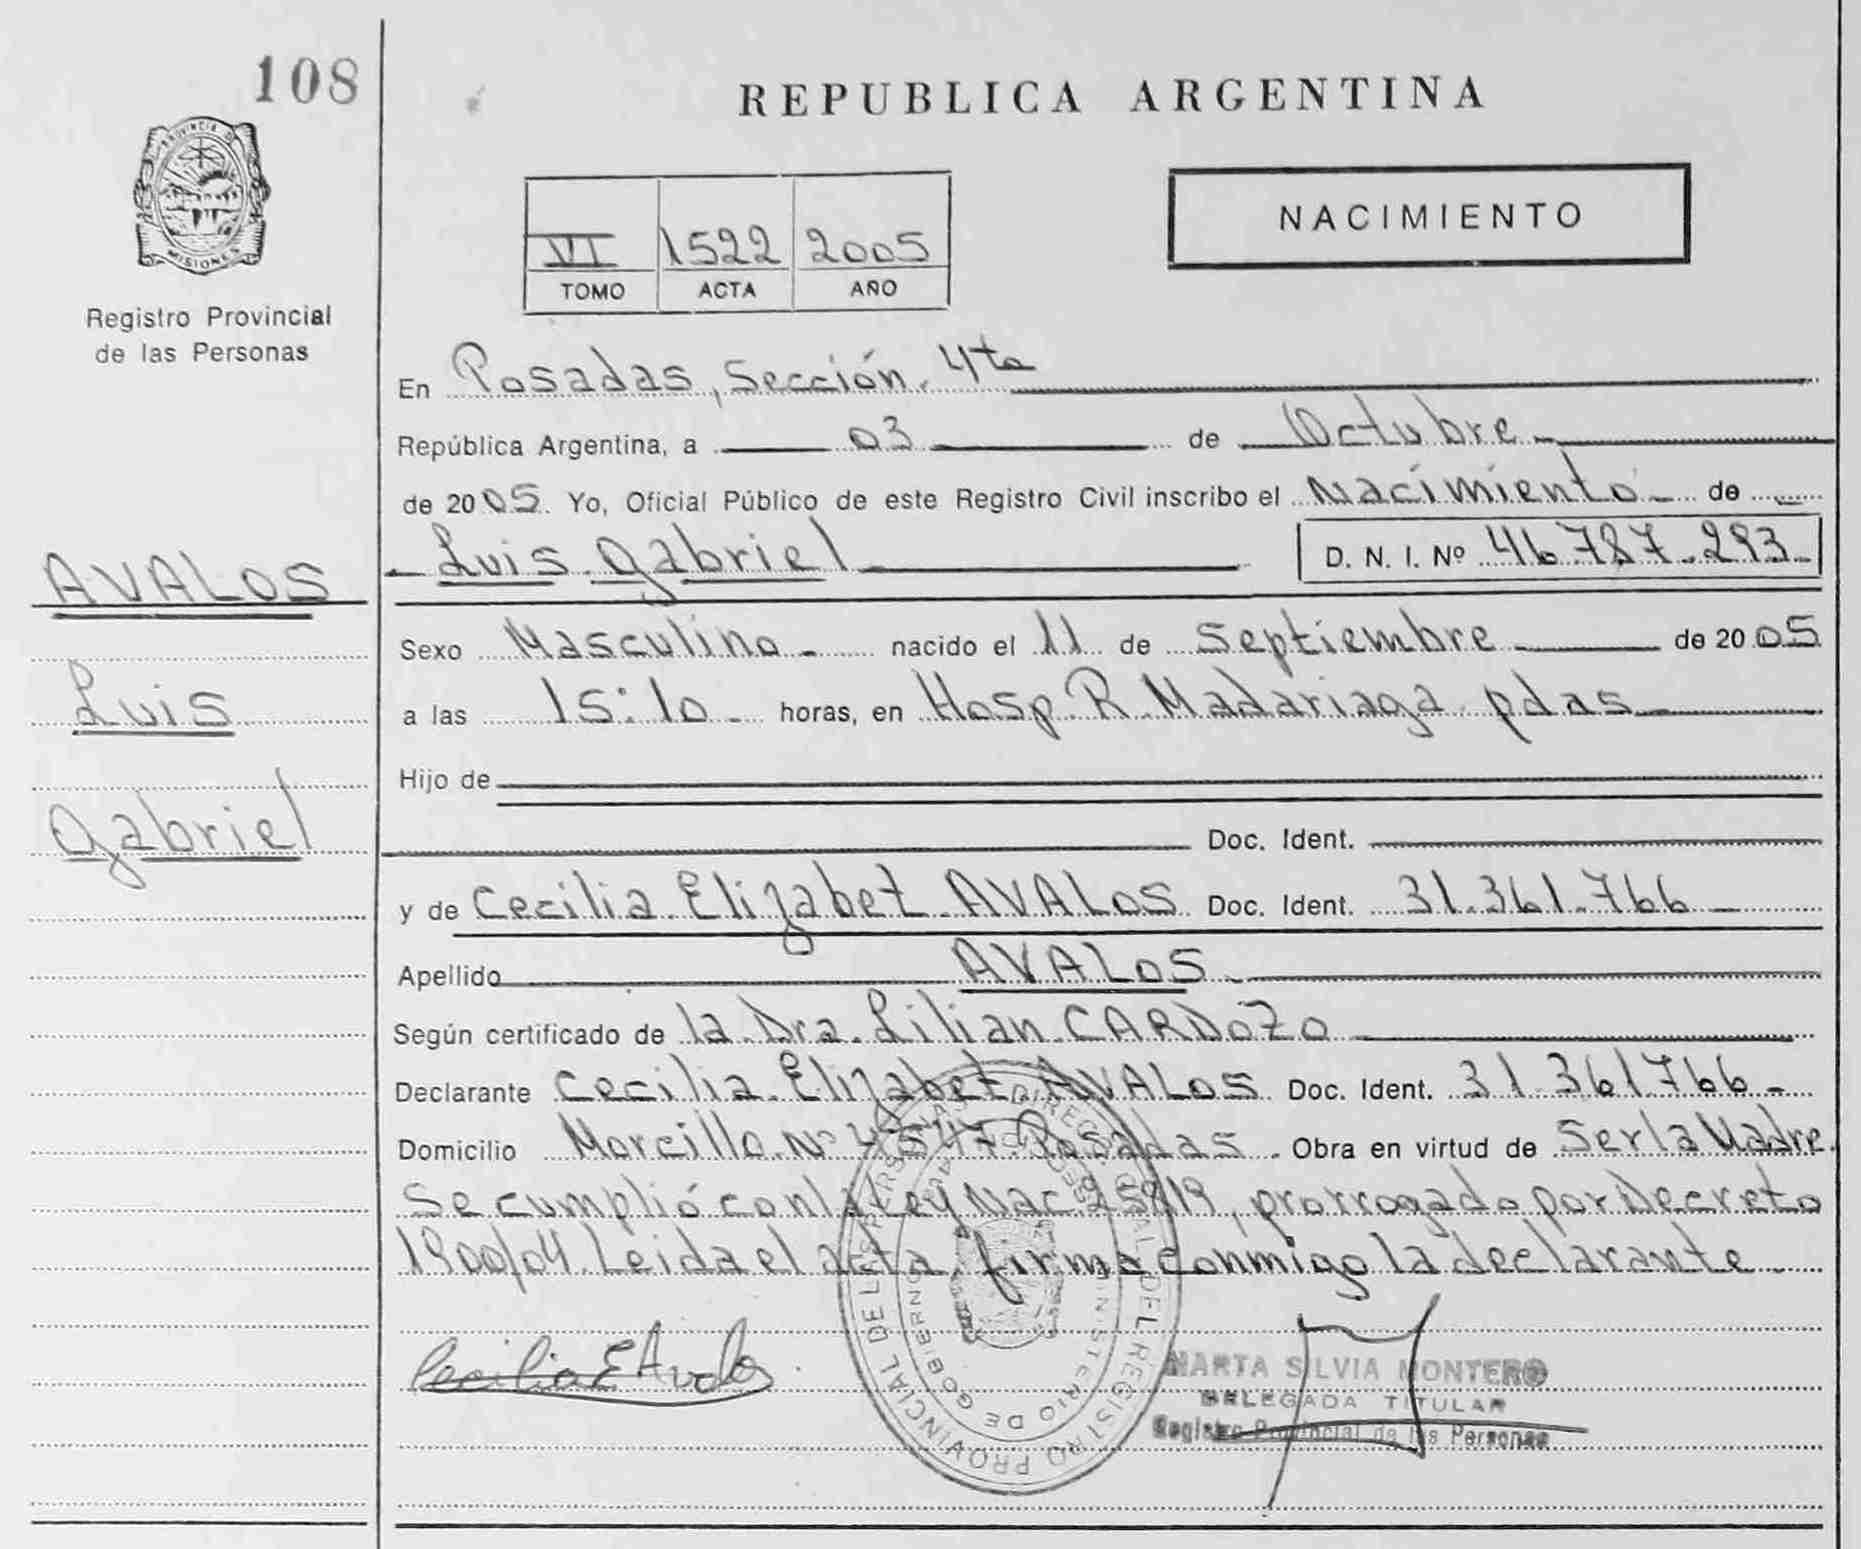 108
REPUBLICA ARGENTINA
PROVINCIA DE
MISIONES
Registro Provincial
de las Personas
NACIMIENTO
VI 1522 2005
TOMO ACTA AÑO
En Posadas, Sección 4ta
República Argentina, a 03 de Octubre
de 2005. Yo, Oficial Público de este Registro Civil inscribo el Nacimiento de
Luis Gabriel D. N. I. Nº 46.787.293
AVALOS
Luis
Gabriel
Sexo Masculino nacido el 11 de Septiembre de 2005
a las 15:10 horas, en Hosp. R. Madariaga pdas
Hijo de
Doc. Ident.
y de Cecilia Elizabet AVALOS Doc. Ident. 31.361.766
Apellido AVALOS
Según certificado de la Dra. Lilian CARDOZO
Declarante Cecilia Elizabet AVALOS Doc. Ident. 31.361766
Domicilio Morcillo Nº 4547 Posadas. Obra en virtud de Ser la Madre.
Se cumplió con la Ley Nac. 25819, prorrogado por Decreto
1900/04. Leida el acta, firma conmigo la declarante
Cecilia E Avalos
MARTA SILVIA MONTERO
DELEGADA TITULAR
Registro Provincial de las Personas
REGISTRO PROVINCIAL DE LAS PERSONAS
MINISTERIO DE GOBIERNO